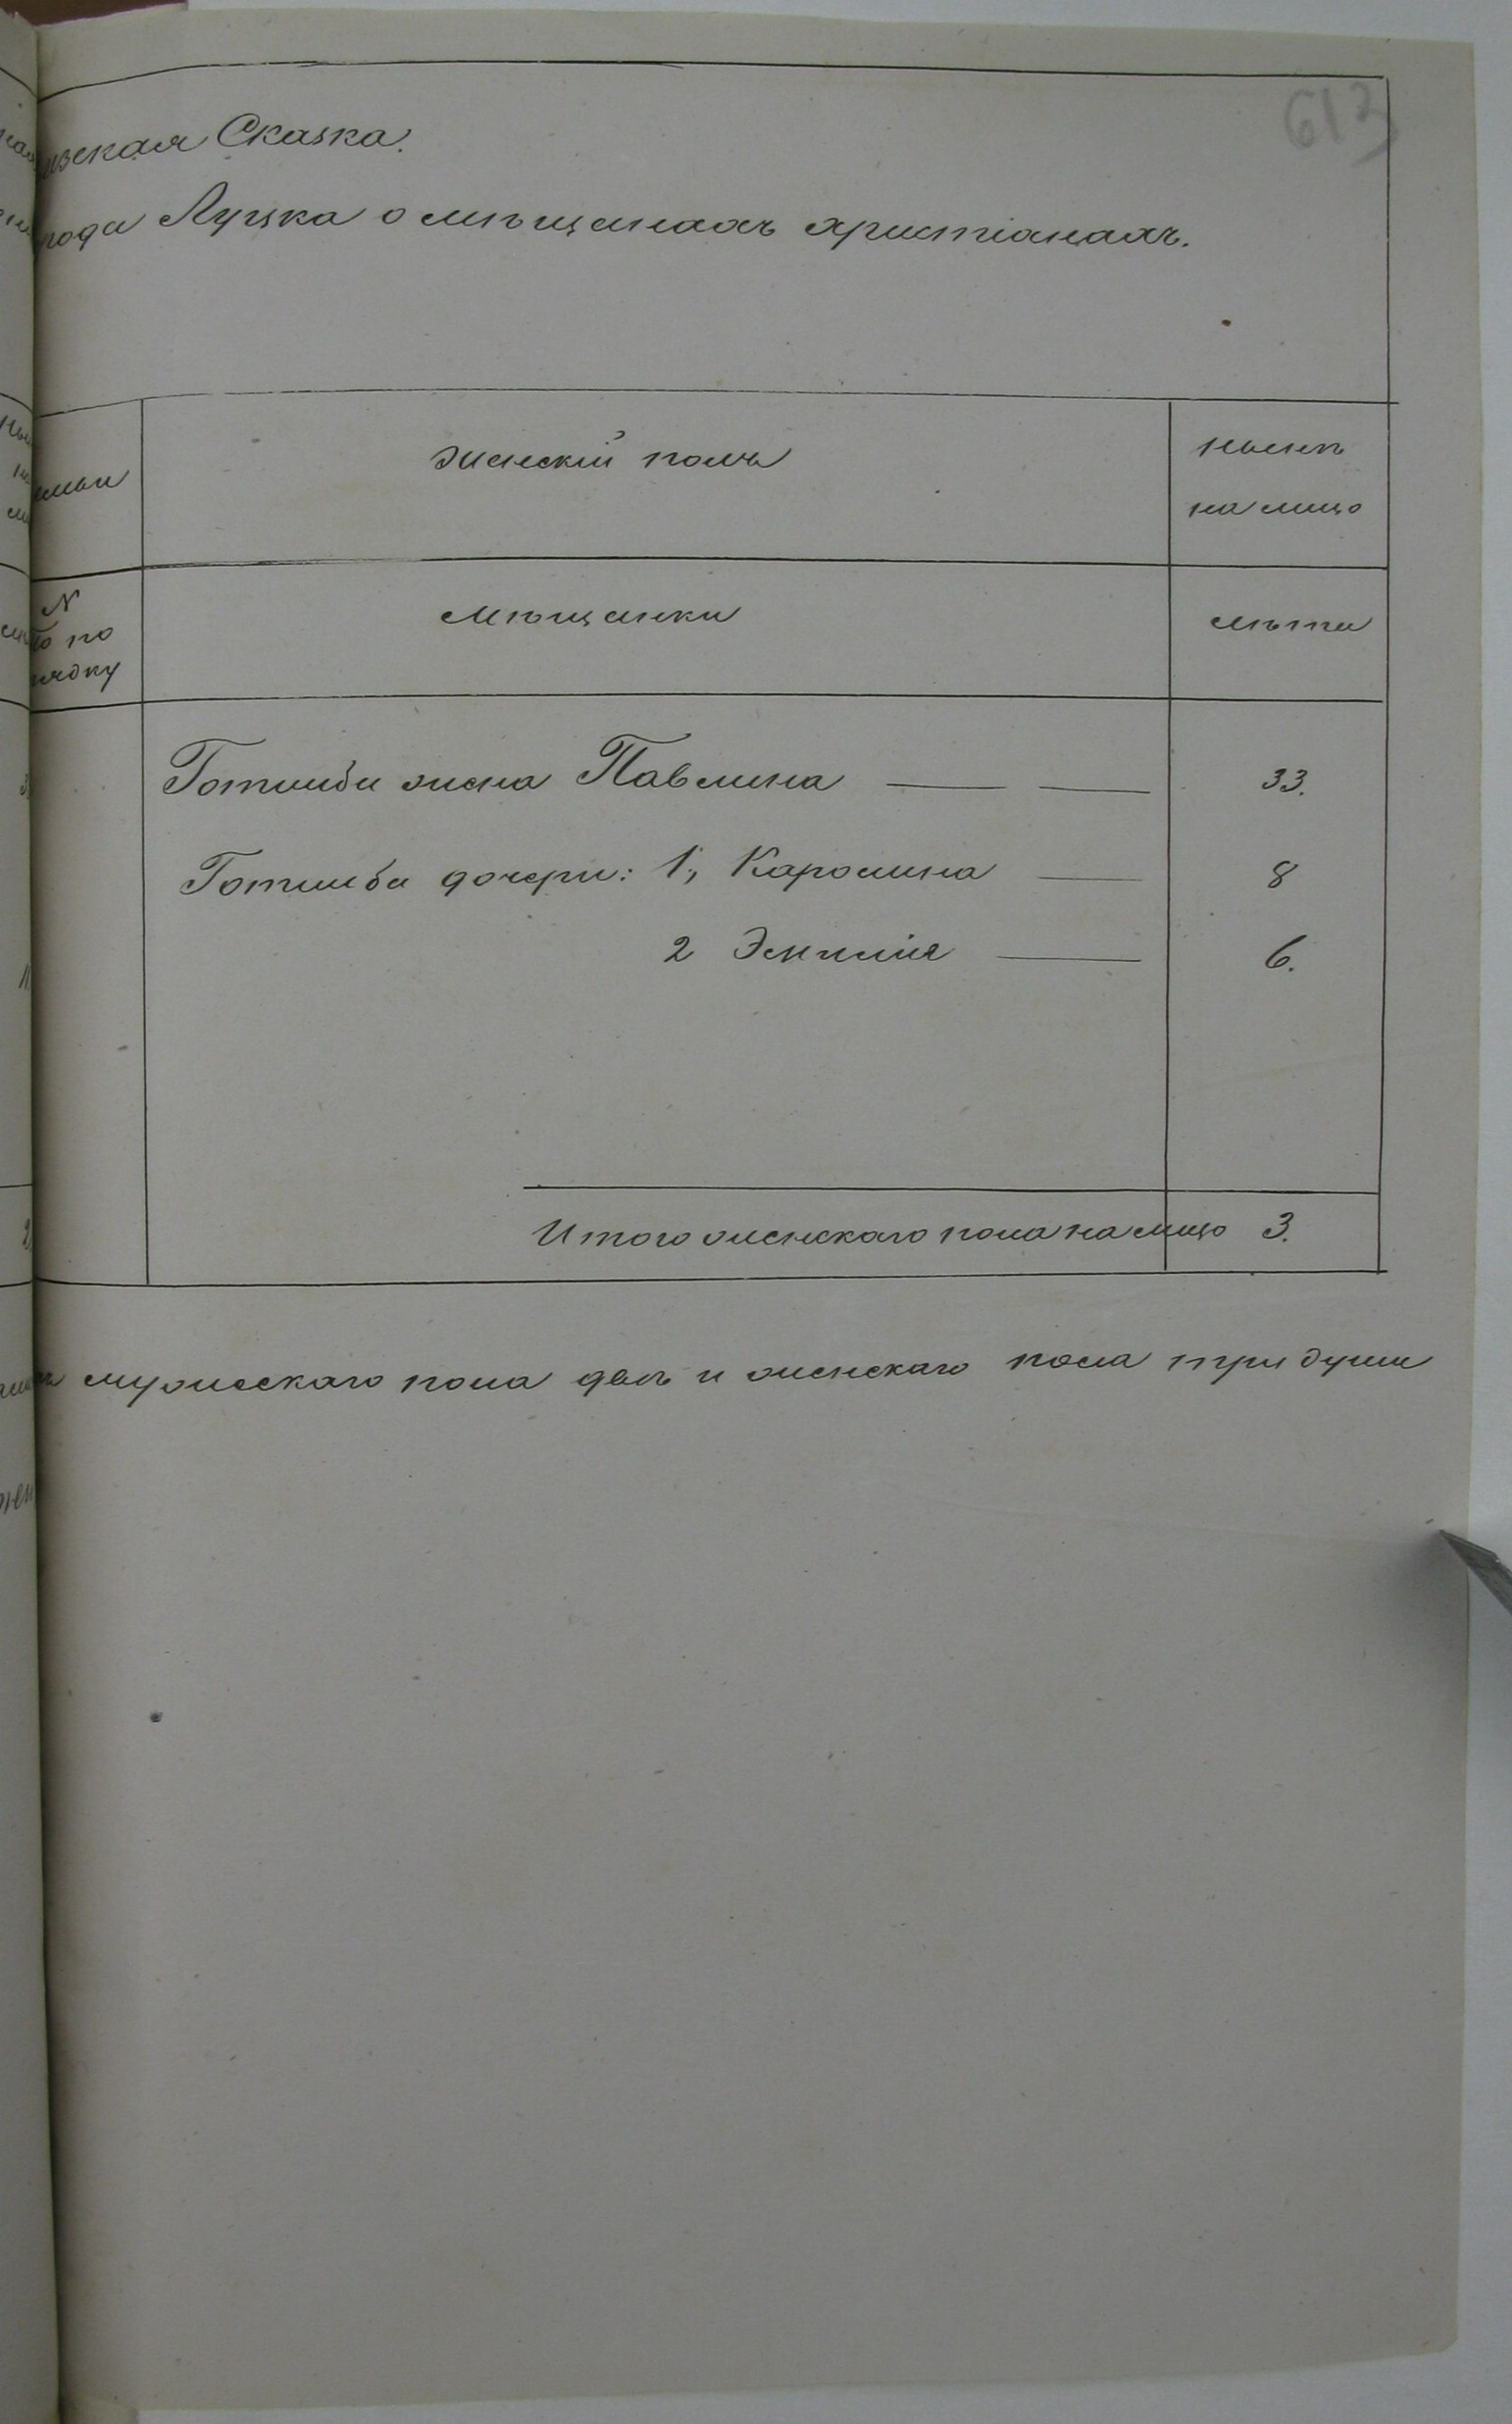 613
изская Сказка.
рода Луцка о мѣщанахъ христіанахъ.
женскій полъ
нынѣ
на лицо
мьи
N
по
рядку
мѣщанки
лѣта
Готлиба жена Павлина 33.
Готлиба дочери: 1, Каролина 8
2 Эмилія 6.
Итого женскаго пола на лицо 3.
мужескаго пола двѣ и женскаго пола три души